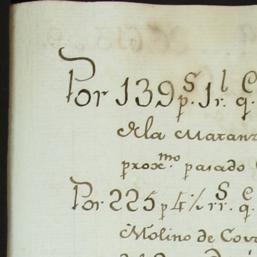 Por 139 p.s 1 r.l q.e
de la Matanz
prox.mo pasado
Por 225 p.s 4½ r.s q.e
Molino de Cov